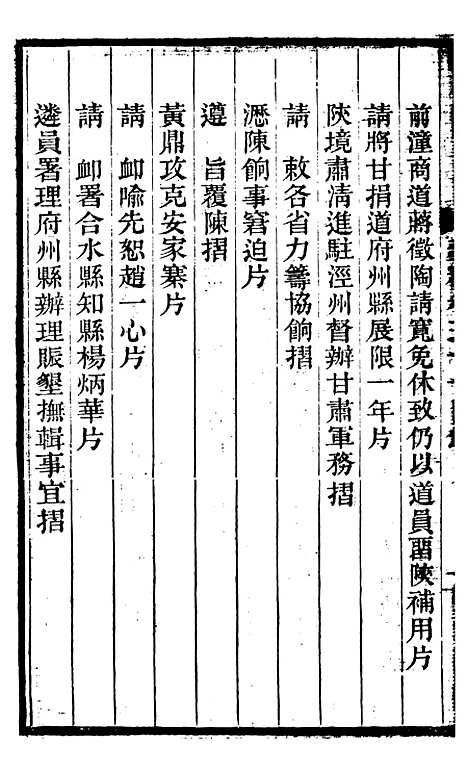 前潼商道蔣徵陶請寬免休致仍以道員畱陝補用片
請將甘捐道府州縣展限一年片
陝境肅清進駐涇州督辦甘肅軍務摺
請　敕各省力籌協餉摺
瀝陳餉事窘迫片
遵　旨覆陳摺
黃鼎攻克安家寨片
請　卹喻先恕趙一心片
請　卹署合水縣知縣楊炳華片
遴員署理府州縣辦理賑墾撫輯事宜摺